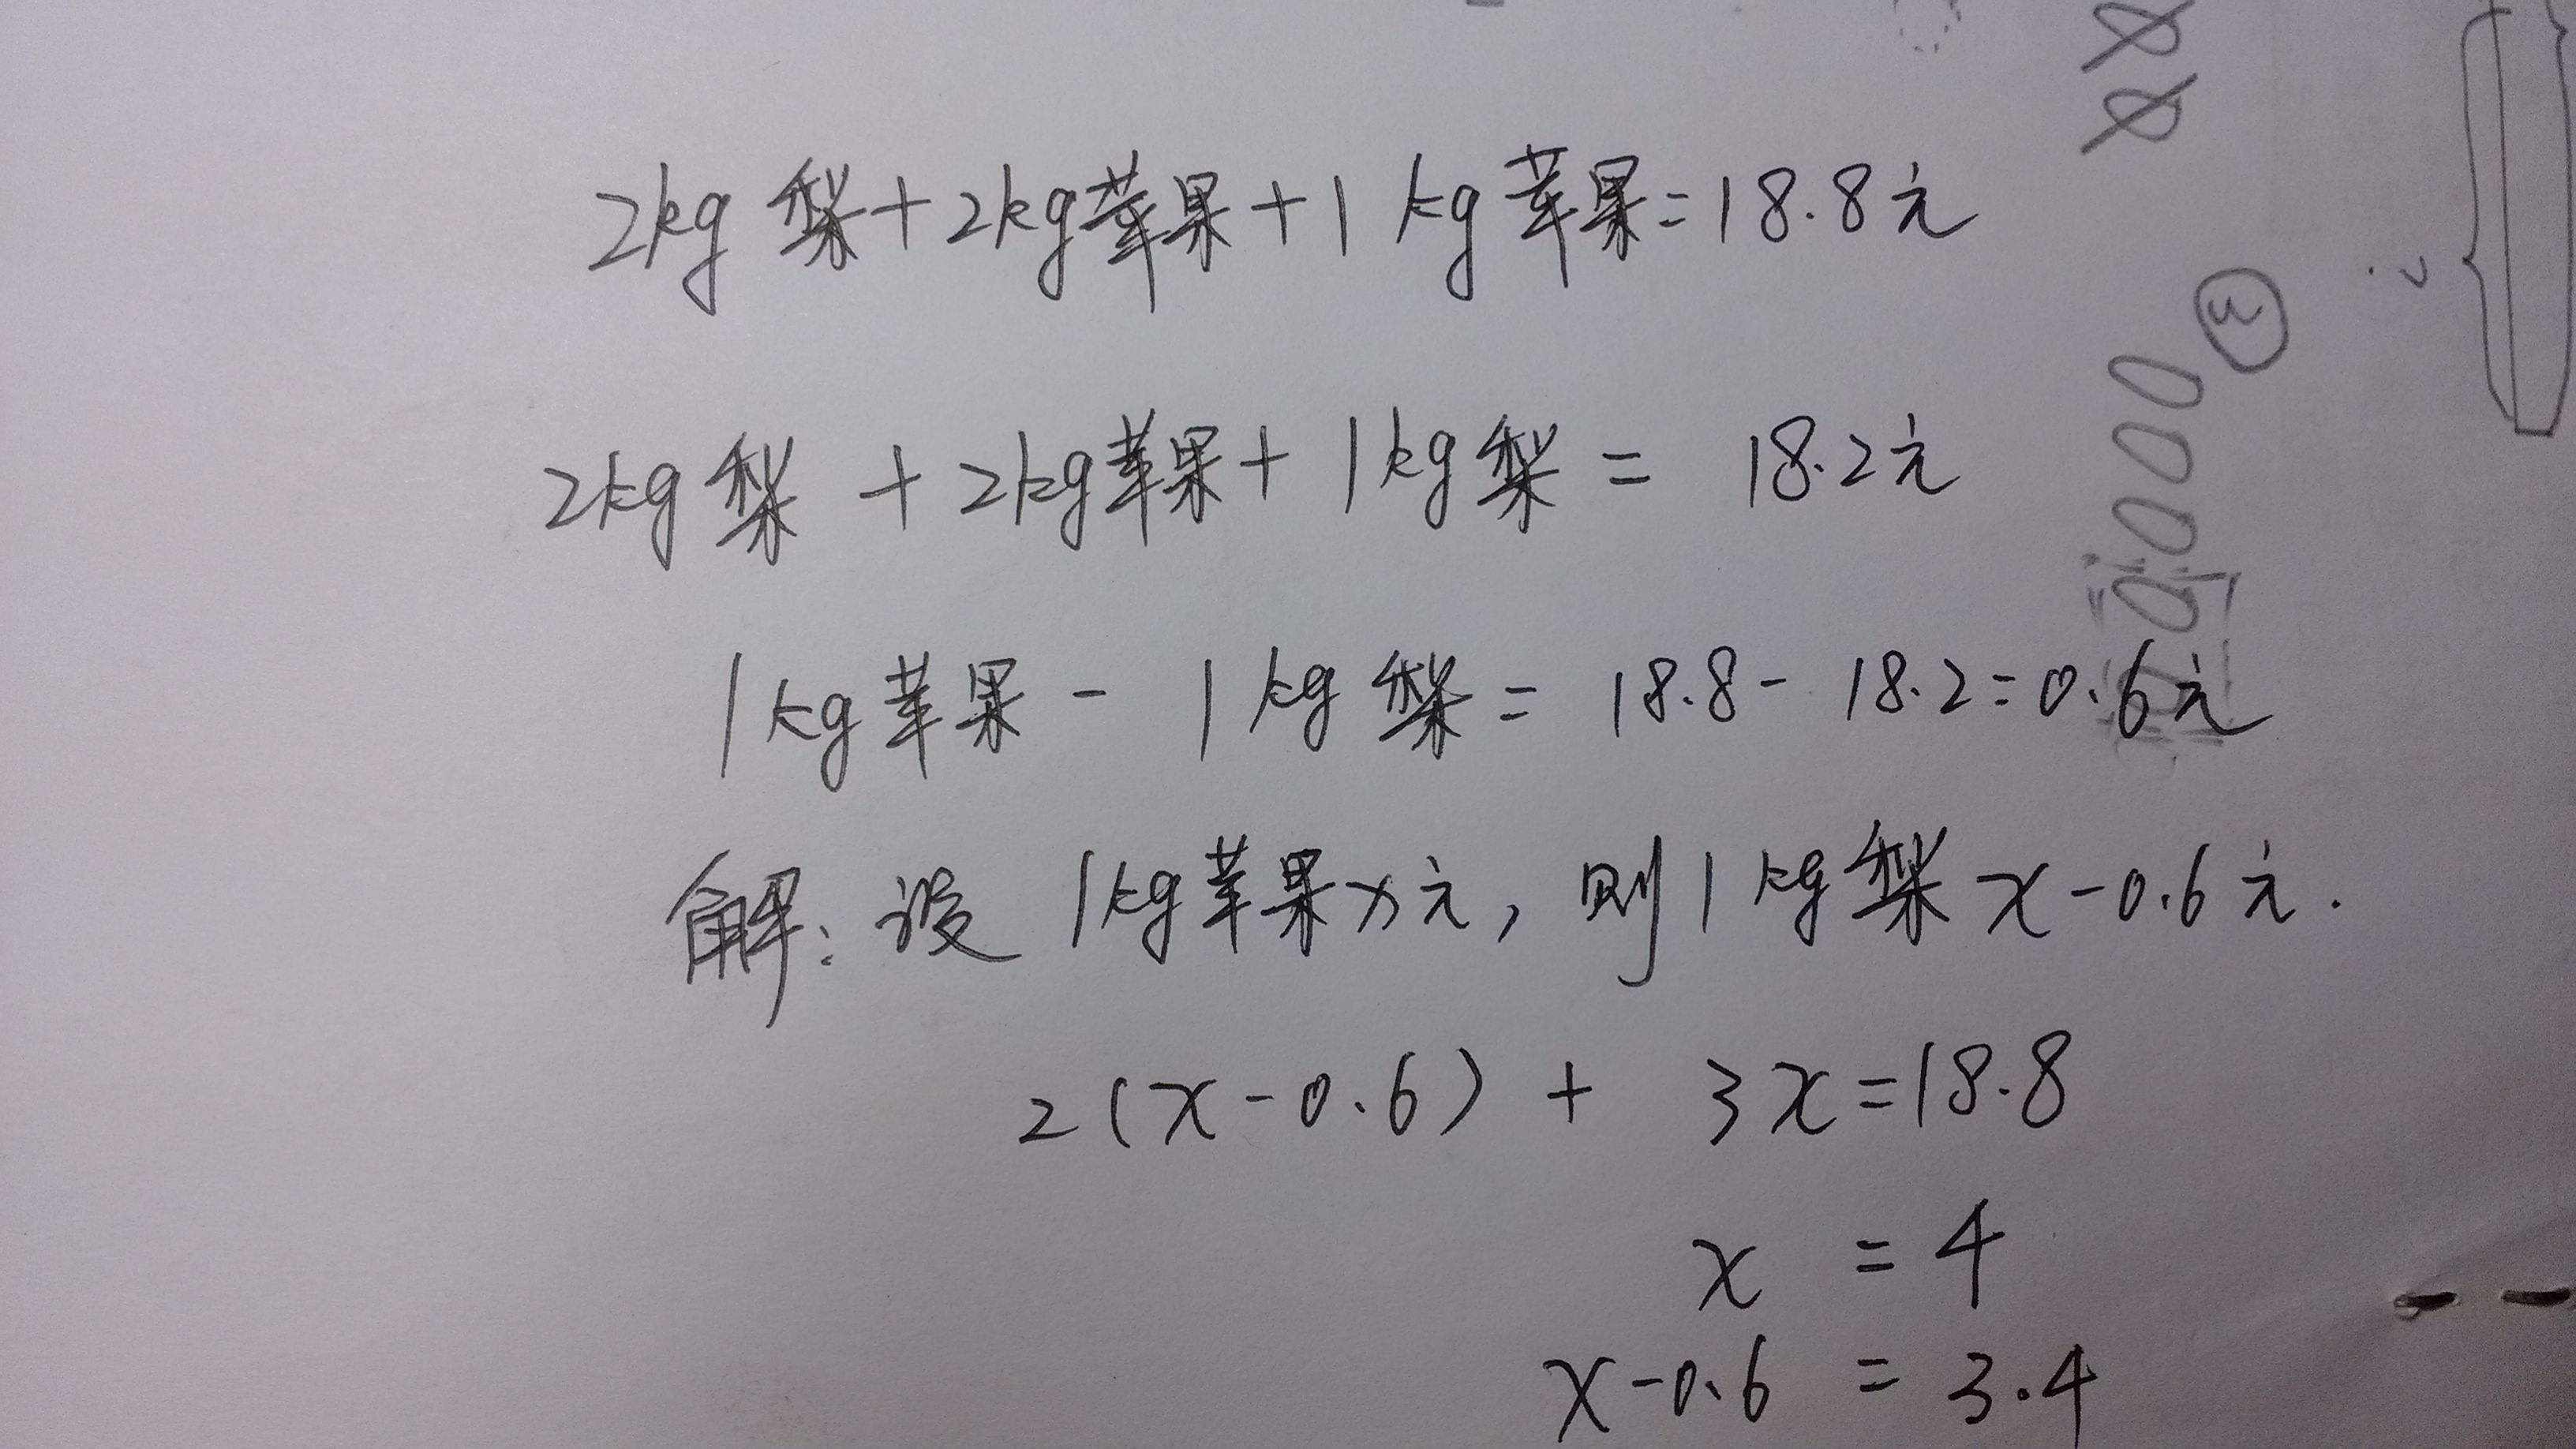 2kg 梨+2kg苹果+1kg苹果=18.8元
2kg梨 + 2kg苹果+ 1kg梨 = 18.2元
1kg苹果 - 1kg梨 = 18.8- 18.2=0.6元
解: 设 1kg苹果x元, 则1kg梨 x-0.6元.
2(x-0.6) + 3x=18.8
x = 4
x-0.6 = 3.4